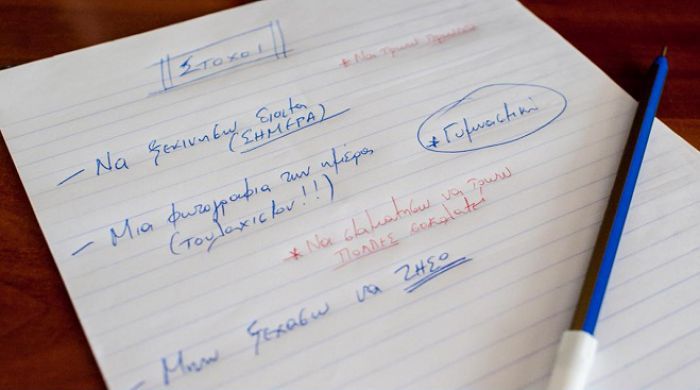 ΣΤΟΧΟΙ
* Να τρώω
– Να ξεκινησω δίαιτα
(ΣΗΜΕΡΑ)
* Γυμναστική
– Μια φωτογραφια την ημέρα
(τουλαχιστον!!)
* Να σταματήσω να τρωω
ΠΟΛΛΗΣ σοκολατες
– Μην ξεχασω να ΖΗΣΩ